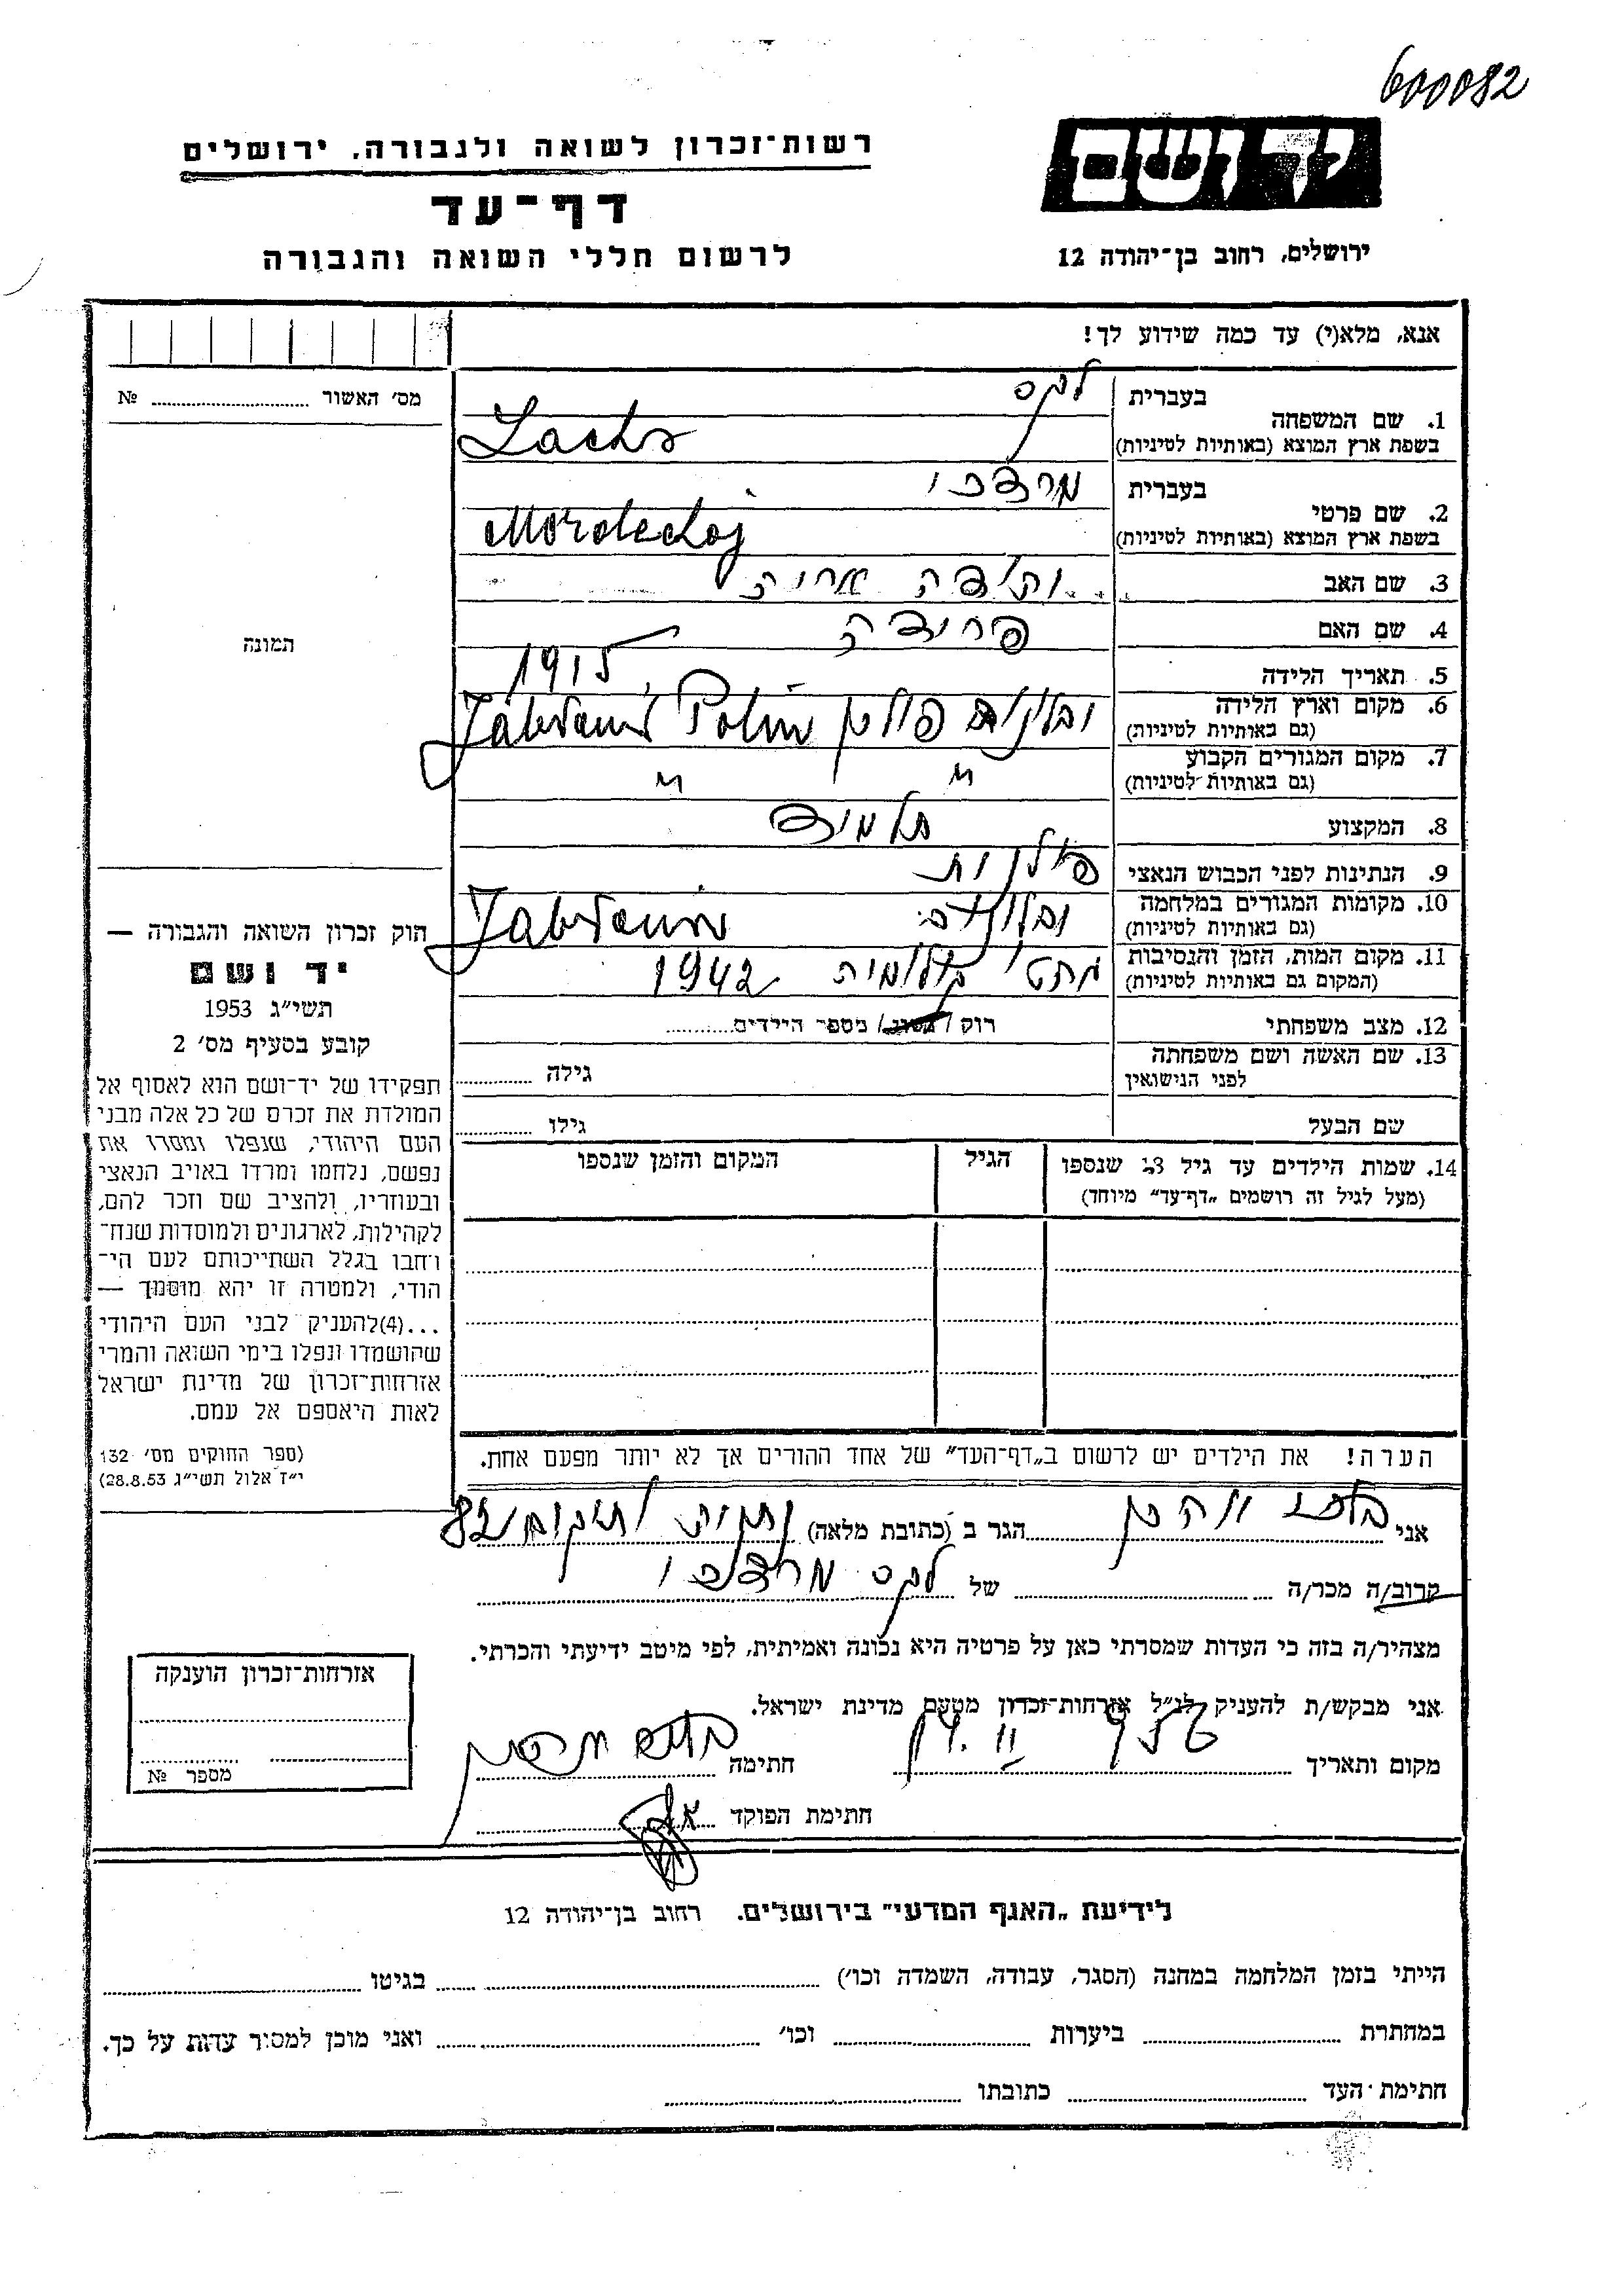 600082
יד ושם
רשות־זכרון לשואה ולגבורה, ירושלים
דף־עד
לרשום חללי השואה והגבורה
ירושלים, רחוב בן־יהודה 12
אנא, מלא(י) עד כמה שידוע לך!
מס׳ האשור № ....................
1. שם המשפחה
בעברית לקס
בשפת ארץ המוצא (באותיות לטיניות) Lachs
2. שם פרטי
בעברית מרדכי
בשפת ארץ המוצא (באותיות לטיניות) Mordechaj
3. שם האב אריה
4. שם האם פרידה
5. תאריך הלידה 1915
6. מקום וארץ הלידה
(גם באותיות לטיניות) פולין
7. מקום המגורים הקבוע
(גם באותיות לטיניות) " "
8. המקצוע תלמיד
9. הנתינות לפני הכבוש הנאצי פולנית
10. מקומות המגורים במלחמה
(גם באותיות לטיניות)
11. מקום המות, הזמן והנסיבות
(המקום גם באותיות לטיניות) 1942
12. מצב משפחתי רוק / נשוי / מספר הילדים
13. שם האשה ושם משפחתה
לפני הנישואין גילה
שם הבעל גילו
14. שמות הילדים עד גיל 13 שנספו
(מעל לגיל זה רושמים „דף־עד״ מיוחד)
הגיל
המקום והזמן שנספו
הערה! את הילדים יש לרשום ב„דף־העד״ של אחד ההורים אך לא יותר מפעם אחת.
תמונה
חוק זכרון השואה והגבורה —
יד ושם
תשי״ג 1953
קובע בסעיף מס׳ 2
תפקידו של יד־ושם הוא לאסוף אל
המולדת את זכרם של כל אלה מבני
העם היהודי, שנפלו ומסרו את
נפשם, נלחמו ומרדו באויב הנאצי
ובעוזריו, ולהציב שם וזכר להם,
לקהילות, לארגונים ולמוסדות שנח־
רבו בגלל השתייכותם לעם הי־
הודי, ולמטרה זו יהא מוסמך —
...(4)להעניק לבני העם היהודי
שהושמדו ונפלו בימי השואה והמרי
אזרחות־זכרון של מדינת ישראל
לאות היאספם אל עמם.
(ספר החוקים מס׳ 132
י״ז אלול תשי״ג 28.8.53)
אני הגר ב (כתובת מלאה) 82
קרוב/ה מכר/ה של לקס מרדכי
מצהיר/ה בזה כי העדות שמסרתי כאן על פרטיה היא נכונה ואמיתית, לפי מיטב ידיעתי והכרתי.
אני מבקש/ת להעניק לנ״ל אזרחות־זכרון מטעם מדינת ישראל.
מקום ותאריך חתימה
חתימת הפוקד
אזרחות־זכרון הוענקה
מספר №
לידיעת „האגף המדעי״ בירושלים. רחוב בן־יהודה 12
הייתי בזמן המלחמה במחנה (הסגר, עבודה, השמדה וכו׳) בגיטו
במחתרת ביערות וכו׳ ואני מוכן למסור עדות על כך.
חתימת העד כתובתו